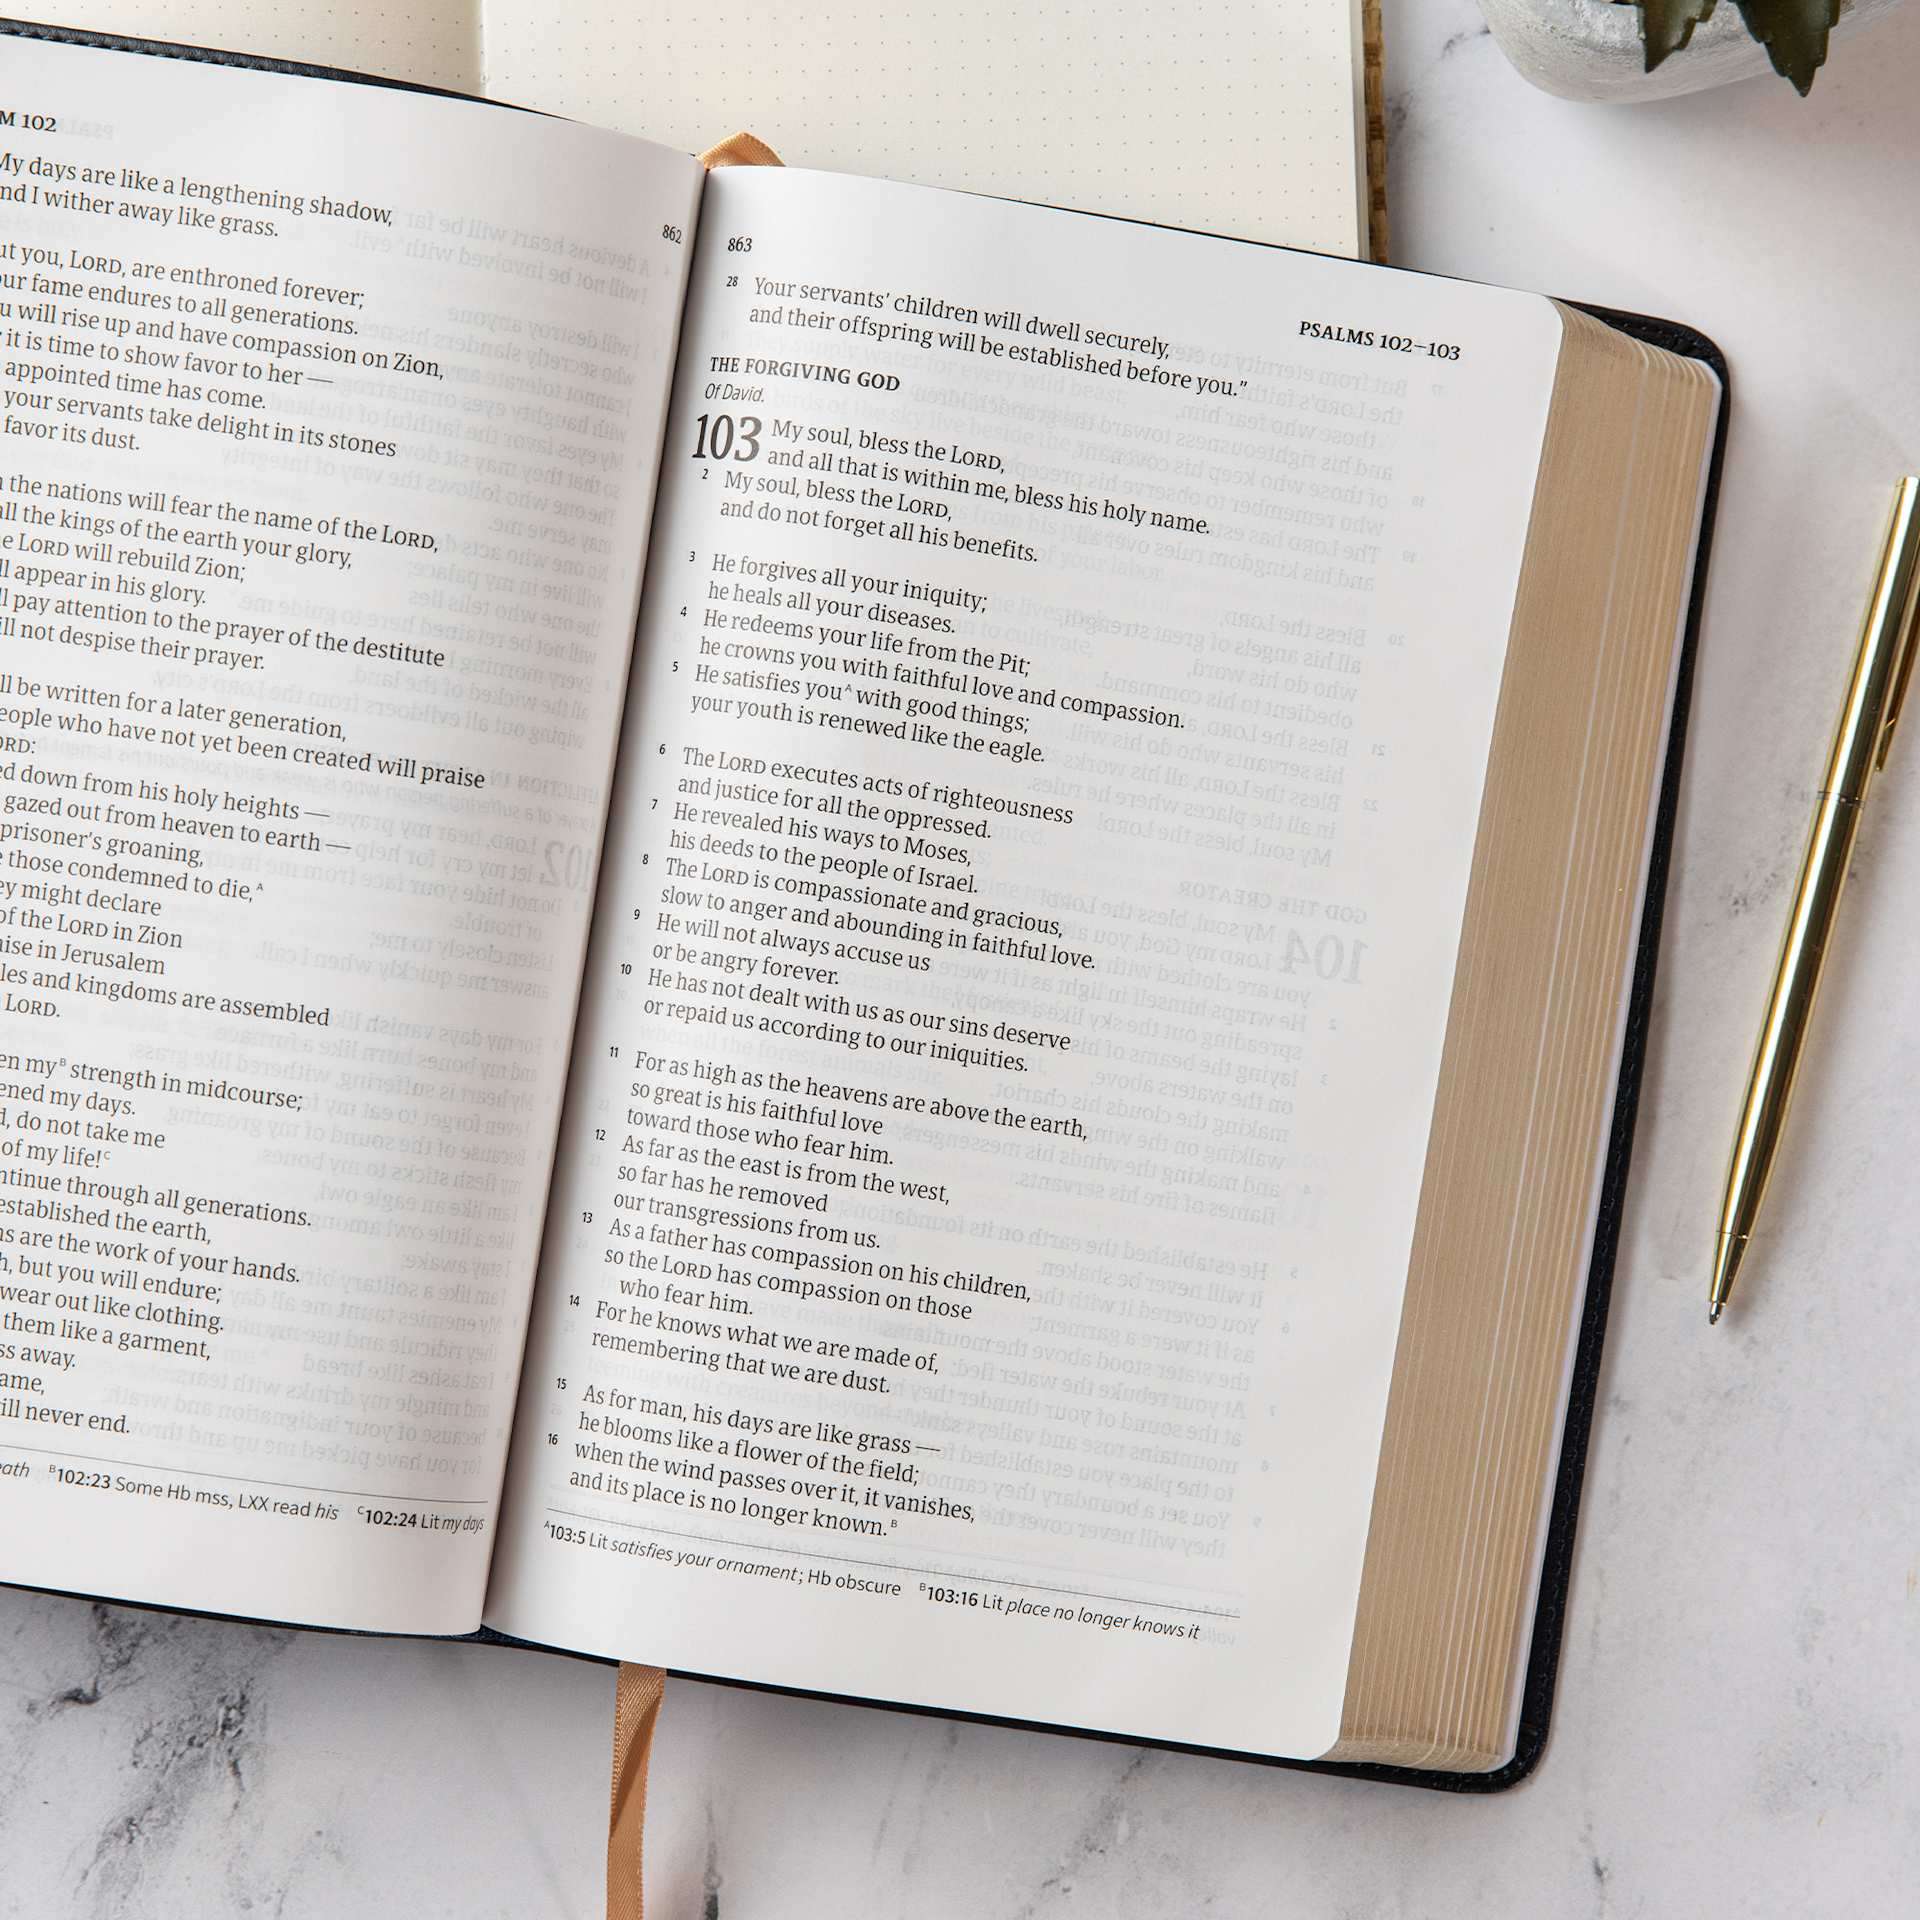 M 102
My days are like a lengthening shadow,
nd I wither away like grass.
ut you, LORD, are enthroned forever;
ur fame endures to all generations.
u will rise up and have compassion on Zion,
it is time to show favor to her —
appointed time has come.
your servants take delight in its stones
favor its dust.
the nations will fear the name of the LORD,
all the kings of the earth your glory,
e LORD will rebuild Zion;
ll appear in his glory.
ll pay attention to the prayer of the destitute
ill not despise their prayer.
ll be written for a later generation,
eople who have not yet been created will praise
ORD:
ed down from his holy heights —
gazed out from heaven to earth —
prisoner's groaning,
e those condemned to die, A
ey might declare
of the LORD in Zion
aise in Jerusalem
les and kingdoms are assembled
LORD.
en my B strength in midcourse;
ened my days.
d, do not take me
of my life! C
ntinue through all generations.
established the earth,
ns are the work of your hands.
h, but you will endure;
wear out like clothing.
them like a garment,
ss away.
ame,
ill never end.
eath B102:23 Some Hb mss, LXX read his C102:24 Lit my days
862
863
PSALMS 102–103
28 Your servants' children will dwell securely,
and their offspring will be established before you."
THE FORGIVING GOD
Of David.
103 My soul, bless the LORD,
and all that is within me, bless his holy name.
2 My soul, bless the LORD,
and do not forget all his benefits.
3 He forgives all your iniquity;
he heals all your diseases.
4 He redeems your life from the Pit;
he crowns you with faithful love and compassion.
5 He satisfies you A with good things;
your youth is renewed like the eagle.
6 The LORD executes acts of righteousness
and justice for all the oppressed.
7 He revealed his ways to Moses,
his deeds to the people of Israel.
8 The LORD is compassionate and gracious,
slow to anger and abounding in faithful love.
9 He will not always accuse us
or be angry forever.
10 He has not dealt with us as our sins deserve
or repaid us according to our iniquities.
11 For as high as the heavens are above the earth,
so great is his faithful love
toward those who fear him.
12 As far as the east is from the west,
so far has he removed
our transgressions from us.
13 As a father has compassion on his children,
so the LORD has compassion on those
who fear him.
14 For he knows what we are made of,
remembering that we are dust.
15 As for man, his days are like grass —
he blooms like a flower of the field;
16 when the wind passes over it, it vanishes,
and its place is no longer known. B
A103:5 Lit satisfies your ornament; Hb obscure B103:16 Lit place no longer knows it